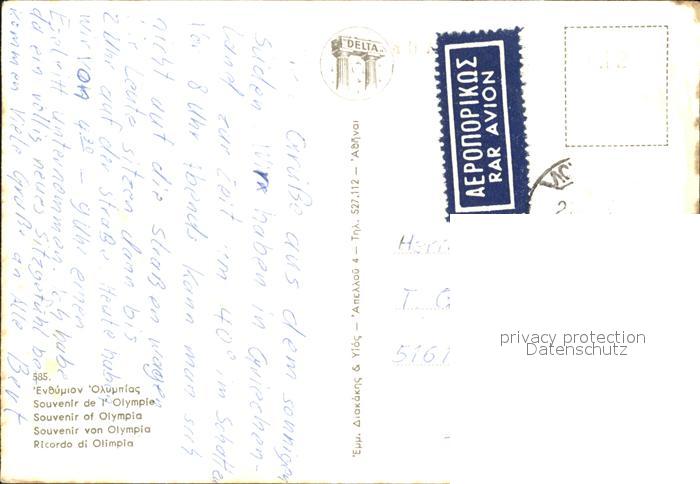 Grüße aus dem sonnigen
Süden. Wir haben in Griechen-
land zur Zeit um 40° im Schatten
Vor 8 Uhr Abends kann man sich
nicht auf die Straßen wagen
Leute sitzen dann bis
2 Uhr auf der Straße. Heute haben
wir von 4³⁰ – 9 Uhr einen
Eselritt unternommen. Ich habe
da ein völlig neues Sitzgefühl be-
kommen Viele Grüße an Alle Bent
585.
Ἐνθύμιον Ὀλυμπίας
Souvenir de l' Olympie
Souvenir of Olympia
Souvenir von Olympia
Ricordo di Olimpia
DELTA
Ἐμμ. Διακάκης & Υἱός – Ἀπελλοῦ 4 – Τηλ. 527.112 – Ἀθῆναι
ΑΕΡΟΠΟΡΙΚΩΣ
PAR AVION
Herr
T. 
5161
privacy protection
Datenschutz